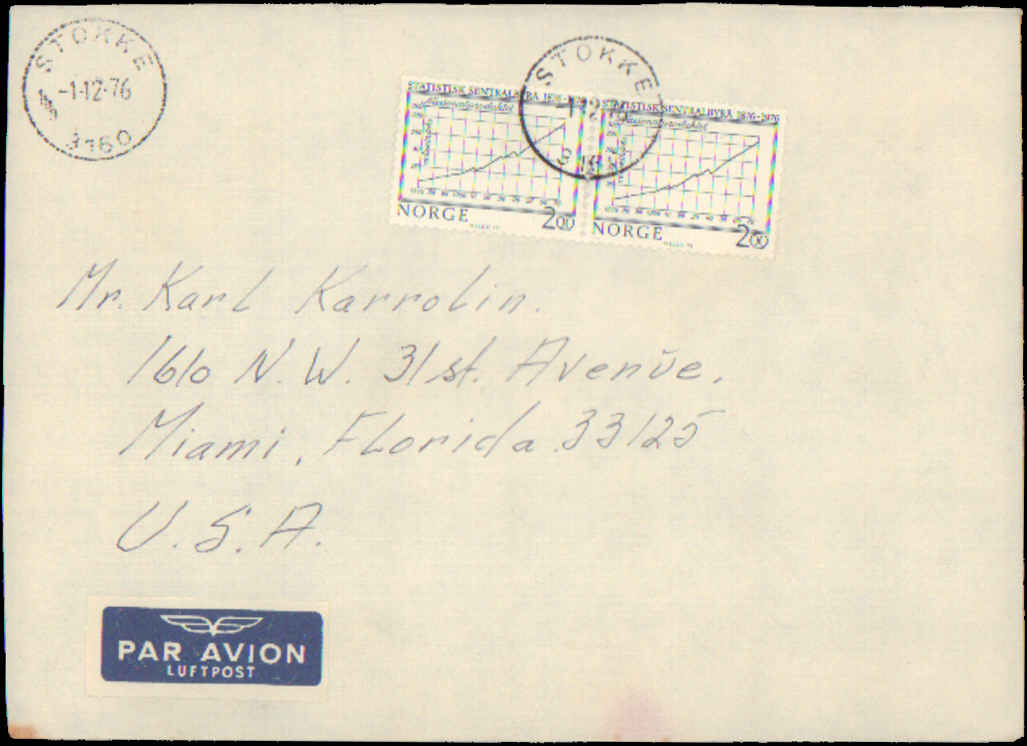 STOKKE
-1-12-76
3160
STOKKE
STATISTISK SENTRALBYRÅ 1876-1976
Nasjonalproduktet
NORGE 2.00
STATISTISK SENTRALBYRÅ 1876-1976
Nasjonalproduktet
NORGE 2.00
Mr. Karl Karrolin.
1610 N.W. 31st. Avenue.
Miami, Florida 33125
U.S.A.
PAR AVION
LUFTPOST